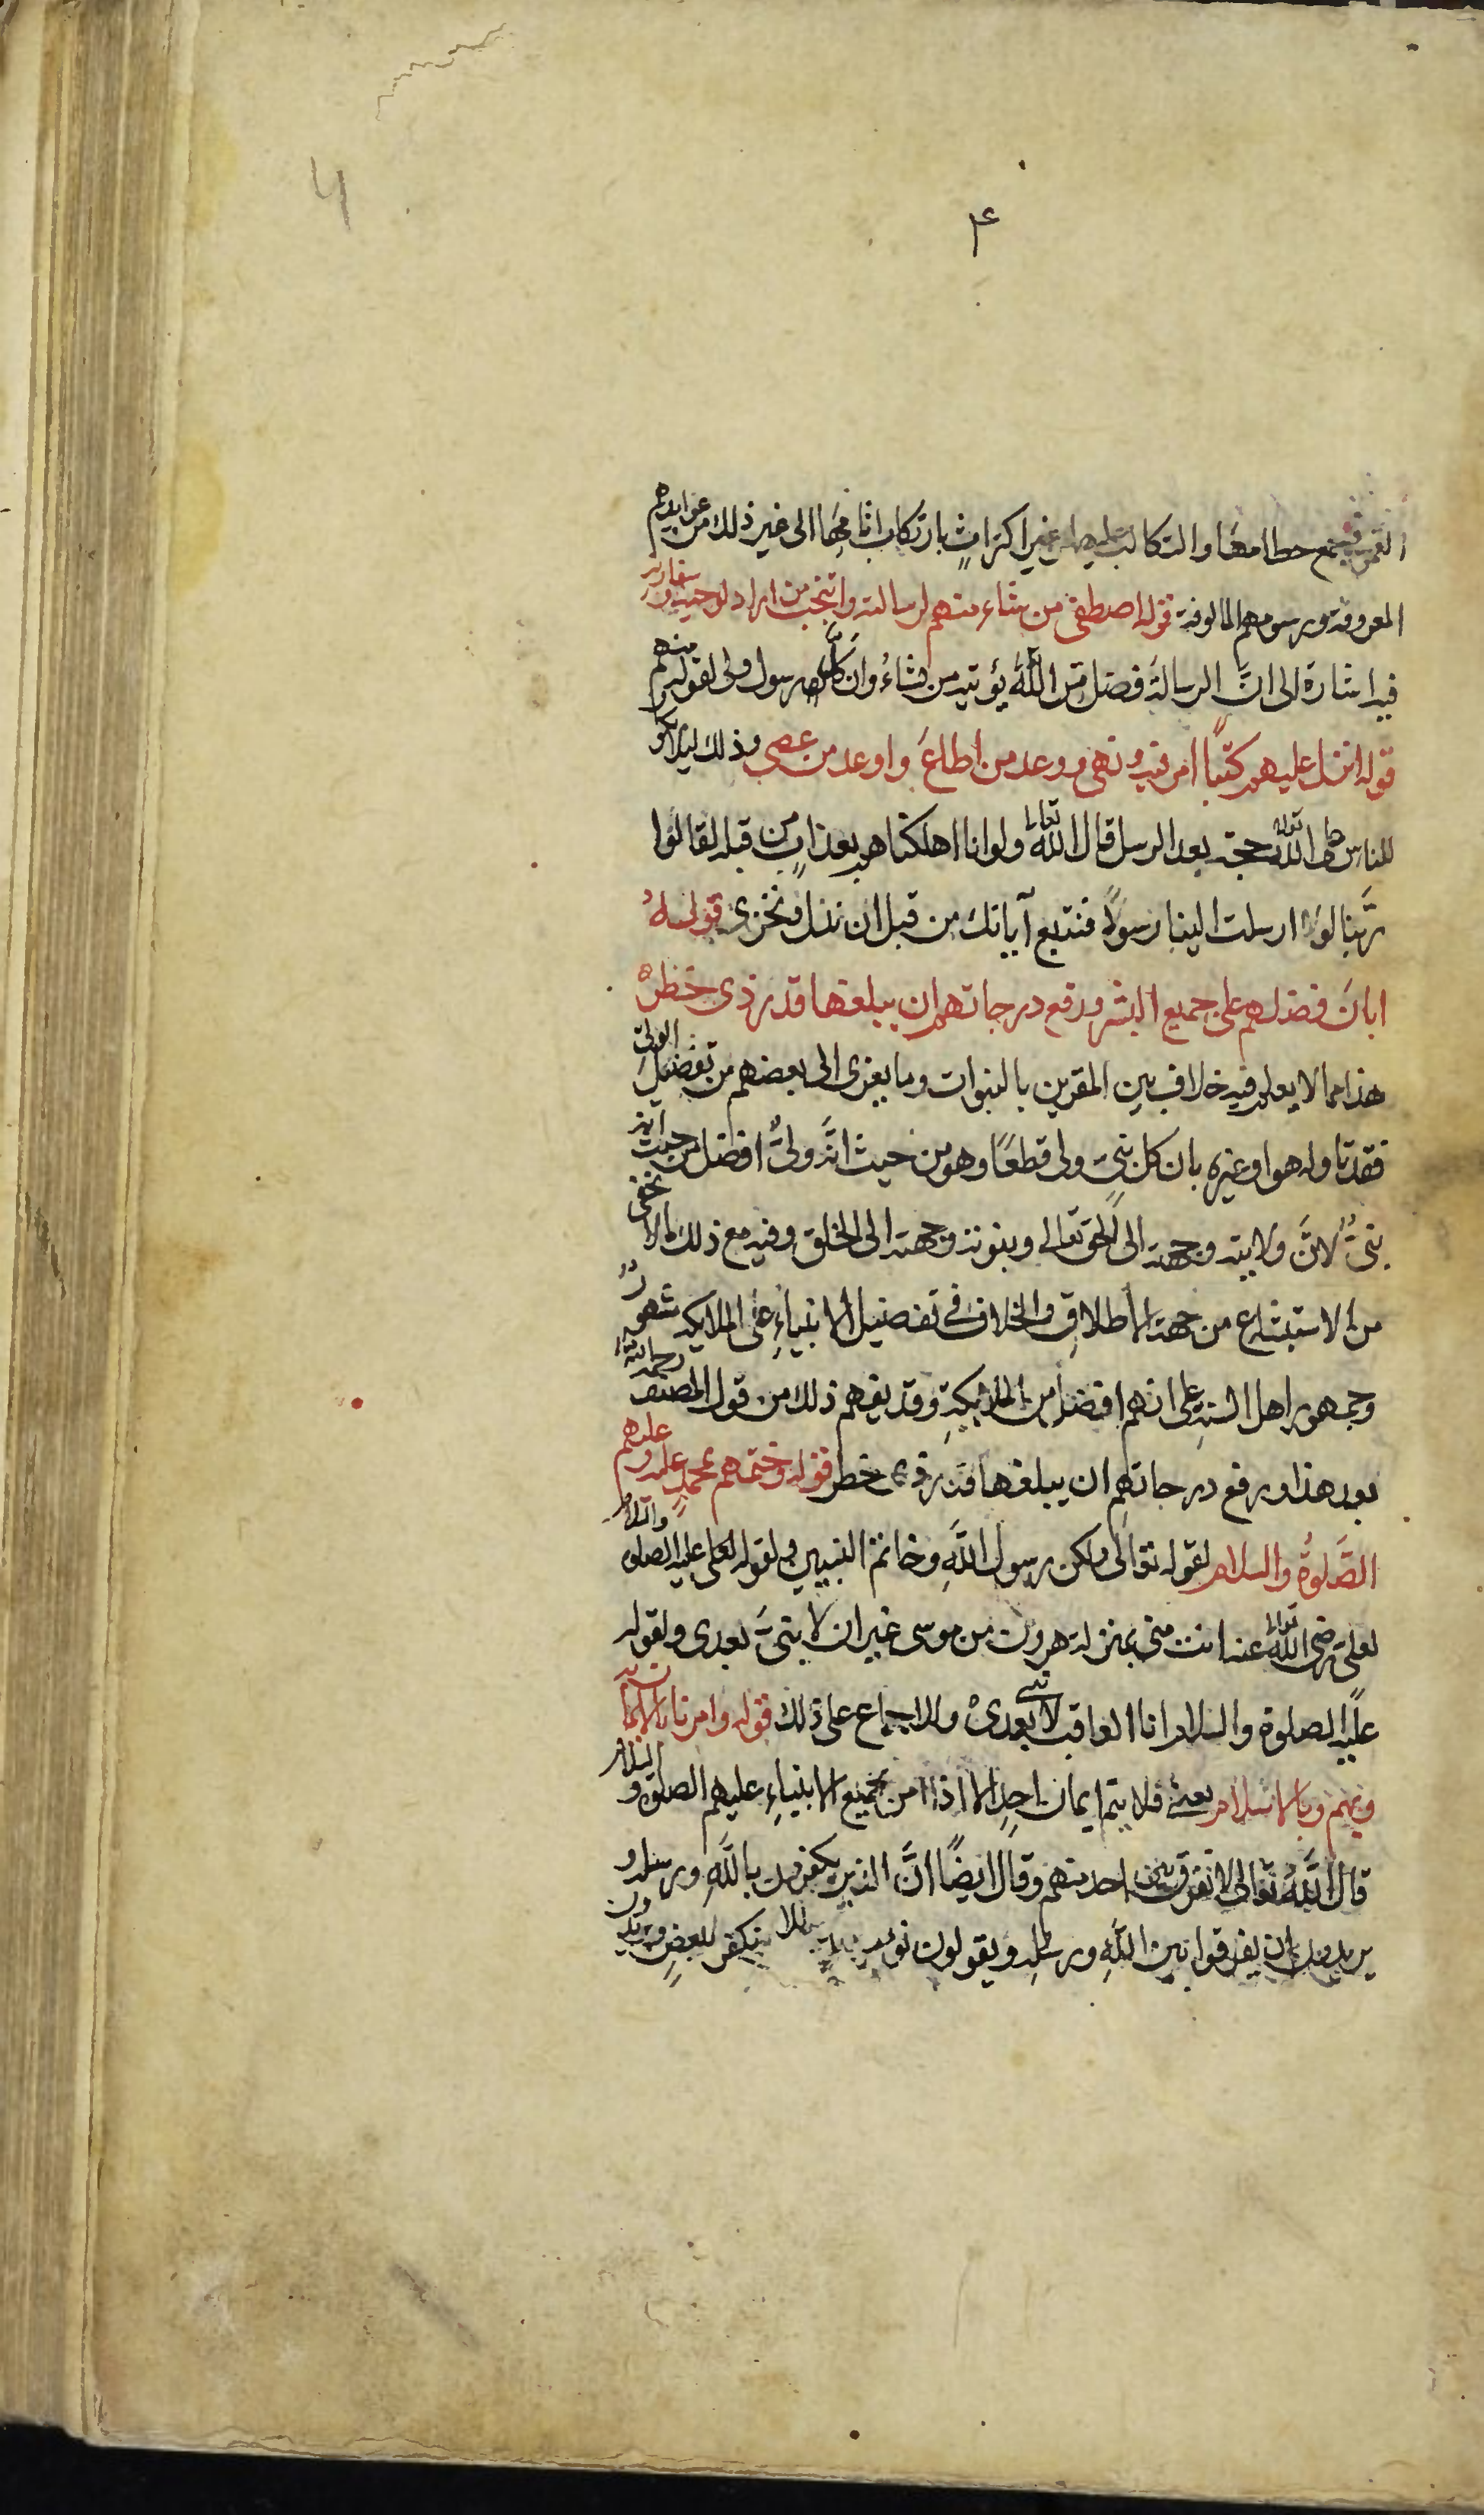 4
۴
العمر في جمع حطامها والتكالب عليها من غير اكتراثٍ بارتكاب اثامها الى غير ذلك من عوايدهم
المعروفة ورسومهم المالوفة قوله اصطفى من شاء منهم لرسالته وانتخب من اراد لوحيه وسفارته
فيه اشارة الى انَّ الرسالةَ فضل من اللّٰه يؤتيه من يشاءُ وان كلَّ رسول ولى لقوله منهم
قوله انزل عليهم كتبًا امر فيه ونهى ووعد من اطاعَ واوعد من عصى وذلك ليلا يكو
للناس على اللّٰه تعالى حجة بعد الرسل قال اللّٰه تعالى ولو انا اهلكناهم بعذابٍ من قبله لقالوا
ربَّنا لولا ارسلت الينا رسولًا فنتبع آياتك من قبل ان نذل ونخزى قولهُ
ابانَ فضلهم على جميع البشر ورفع درجاتهم ان يبلغها قدر ذى خطره
هذا مما لا يعلم فيه خلاف بين المقرين بالنبوات وما يعزى الى بعضهم من تفضيل الولىّ
فقد تاوله هو او غيره بان كل نبىّ ولى قطعًا وهو من حيث انَّه ولىٌّ افضل من حيث انه
نبىٌّ لانَّ ولايته وجهته الى الحق تعالى وبنوته وجهته الى الخلق وفيه مع ذلك مالا يخفى
من الاستبشاع من جهة الاطلاقِ والخلاف فى تفضيل الانبياءِ على الملايكة شهور
وجمهور اهل السنةِ على انهم افضل من الملايكةِ وقد يفهم ذلك من قول المصنف رحمه الله
بعد هذا ورفع درجاتهم ان يبلغها قدر ذى خطر قوله وختمهم بمحمدٍ عليه وعليهم
الصَّلوةُ والسلام لقوله تعالى ولكن رسول اللَّهِ وخاتم النبيين ولقوله لعلى عليه الصلوة والسلام
لعلىّ رضى اللّٰه تعالى عنه انت منى بمنزلة هرون من موسى غير ان لا نبىَّ بعدى ولقوله
عليه الصلوة والسلام انا العاقب لا نبى بعدى والاجماع على ذلك قوله وامرنا بالايمان به
وبهم وبالاسلام يعنى فلا يتم ايمان احدٍ الا اذا امن بجميع الانبياءِ عليهم الصلوة والسلام
قال اللَّهُ تعالى لا نفرق بين احد منهم وقال ايضًا انَّ الذين يكفرون باللَّهِ ورسله و
يريدون ان يفرقوا بين اللَّهِ ورسله ويقولون نؤمن ببعض ونكفر ببعضٍ ويريدون